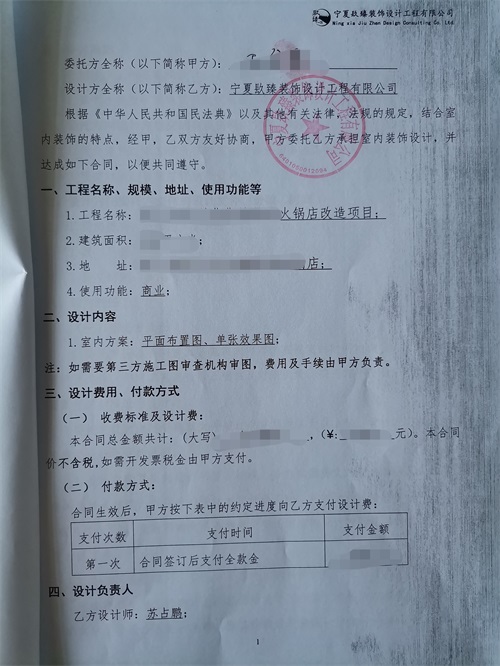 宁夏臤臻装饰设计工程有限公司
委托方全称（以下简称甲方）：
设计方全称（以下简称乙方）：宁夏臤臻装饰设计工程有限公司
根据《中华人民共和国民法典》以及其他有关法律，法规的规定，结合室
内装饰的特点，经甲，乙双方友好协商，甲方委托乙方承担室内装饰设计，并
达成如下合同，以便共同遵守。
一、工程名称、规模、地址、使用功能等
1.工程名称：火锅店改造项目；
2.建筑面积：
3.地 址：店；
4.使用功能：商业；
二、设计内容
1.室内方案：平面布置图、单张效果图；
注：如需要第三方施工图审查机构审图，费用及手续由甲方负责。
三、设计费用、付款方式
（一） 收费标准及设计费：
本合同总金额共计：（大写），（¥：元）。本合同
价不含税，如需开发票税金由甲方支付。
（二） 付款方式：
合同生效后，甲方按下表中的约定进度向乙方支付设计费：
支付次数 支付时间 支付金额
第一次 合同签订后支付全款金
四、设计负责人
乙方设计师：苏占鹏；
1